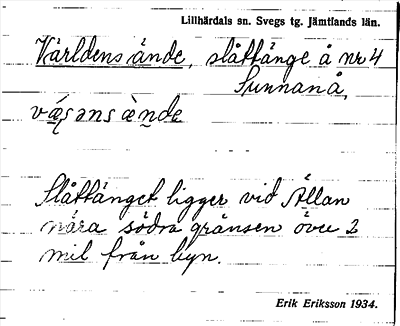 Lillhärdals sn. Svegs tg. Jämtlands län.
Världens ände, slåttänge å nr 4
Sunnanå,
Slåttänget ligger vid Ållan
nära södra gränsen över 2
mil från byn.
Erik Eriksson 1934.